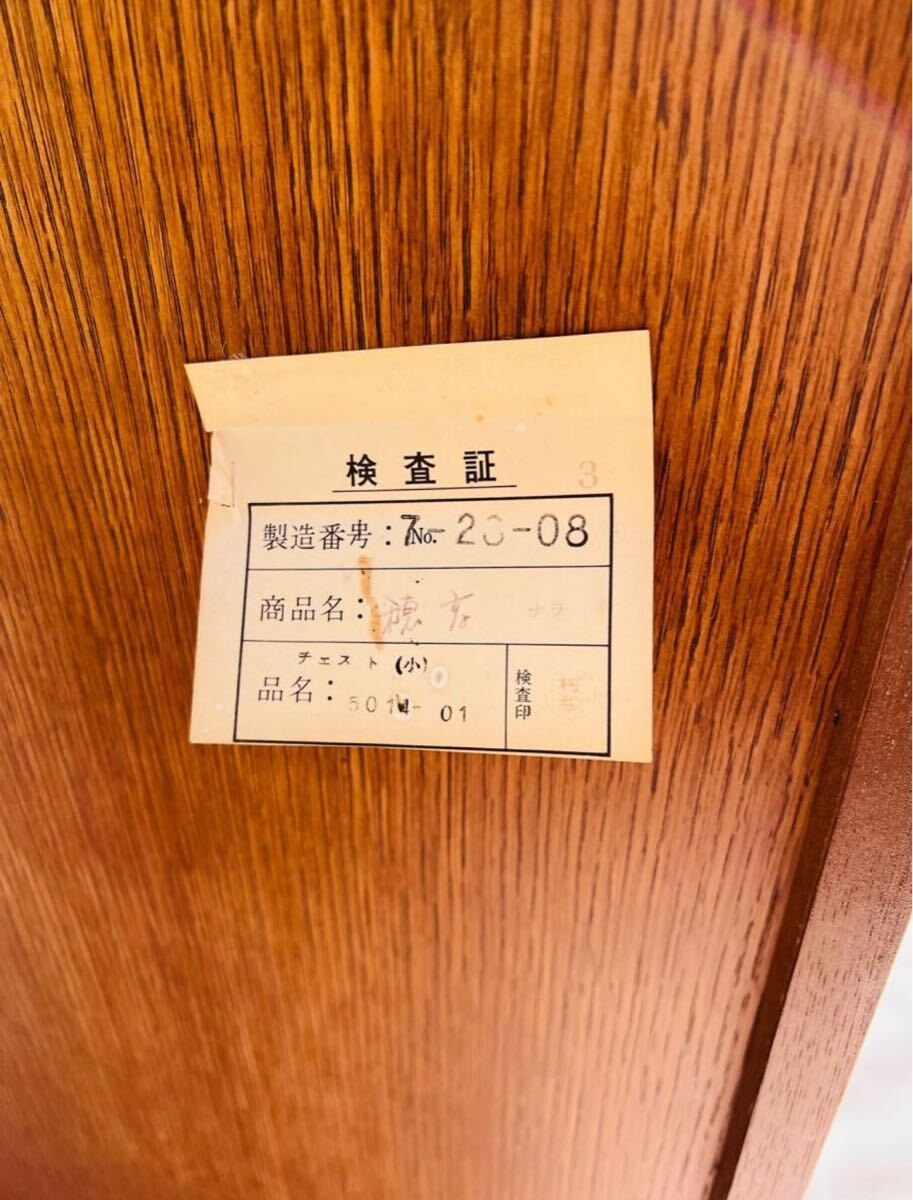 検査証 3
製造番号:No. 7-20-08
商品名: ナラ
チェスト(小)
品名:5014-01
検査印